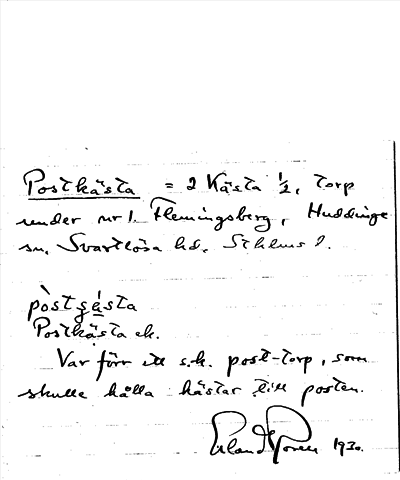 Postkästa = 2 Kästa 1/2, torp
under nr 1. Flemingsberg, Huddinge
sn, Svartlösa hd. Sthlms l.
pòstçésta
Postkästa ek.
Var förr ett s.k. post-torp, som
skulle hålla hästar till posten.
Erland Rosell 1930.